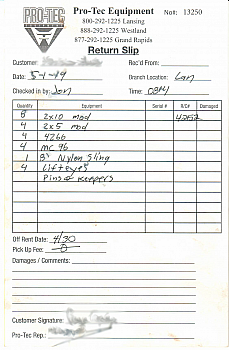 PRO-TEC
EQUIPMENT
Pro-Tec Equipment No#: 13250
800-292-1225 Lansing
888-292-1225 Westland
877-292-1225 Grand Rapids
Return Slip
Customer: Rec'd From:
Date: 5-1-19 Branch Location: Lan
Checked in by: Jon Time: 0814
Quantity Equipment Serial # R/D# Damaged
8 2x10 mod 4252
4 2x5 mod
4 4266
4 MC 96
1 8' Nylon Sling
4 Lift eyes
Pins & keepers
Off Rent Date: 4/30
Pick Up Fee: 0
Damages / Comments:
Customer Signature:
Pro-Tec Rep.: